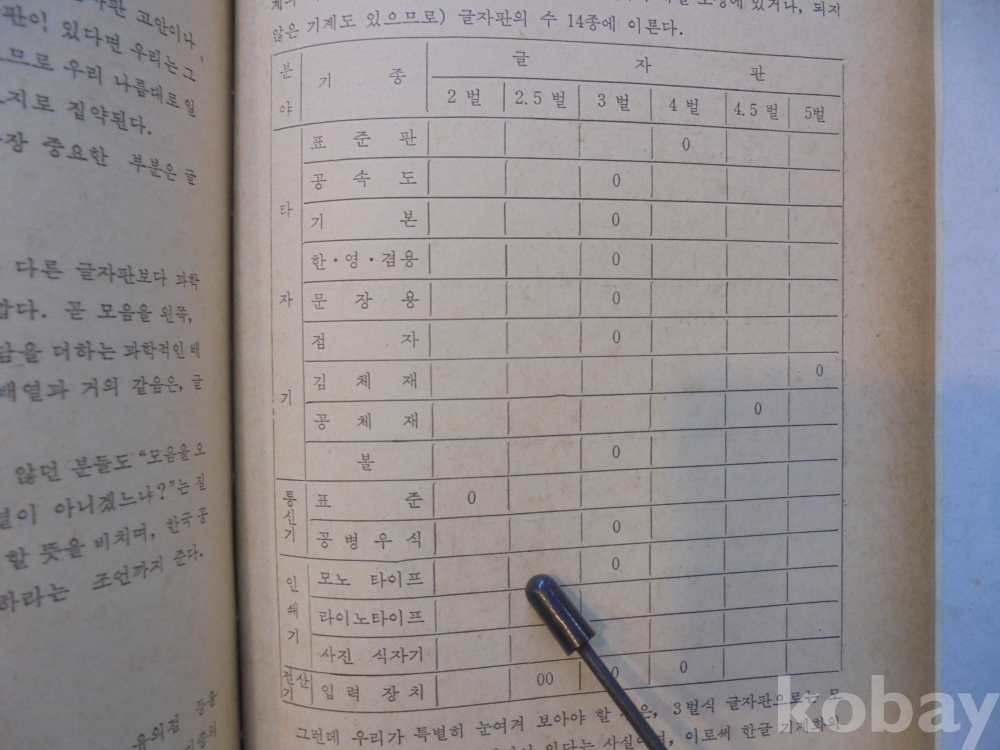 자판 고안이나
판이 있다면 우리는 그
므로 우리 나름대로 일
지로 집약된다.
장 중요한 부분은 글
다른 글자판보다 과학
같다. 곧 모음을 왼쪽,
담을 더하는 과학적인 배
배열과 거의 같음은, 글
않던 분들도 “모음을 오
이 아니겠느냐?”는 질
할 뜻을 비치며, 한국 공
하라는 조언까지 준다.
유의점 등을
않은 기계도 있으므로) 글자판의 수 14종에 이른다.
분야 기 종 글 자 판
2 벌 2.5 벌 3 벌 4 벌 4.5 벌 5벌
타자기
표 준 판 0
공 속 도 0
기 본 0
한·영·겸용 0
문 장 용 0
점 자 0
김 체 재 0
공 체 재 0
볼 0
통신기
표 준 0
공 병 우 식 0
인쇄기
모노 타이프 0
라이노타이프
사진 식자기
전산기
입 력 장 치 00 0 0
그런데 우리가 특별히 눈여겨 보아야 할 은, 3벌식 글자판으로는 모
있다는 사실이며, 이로써 한글 기계화의
kobay